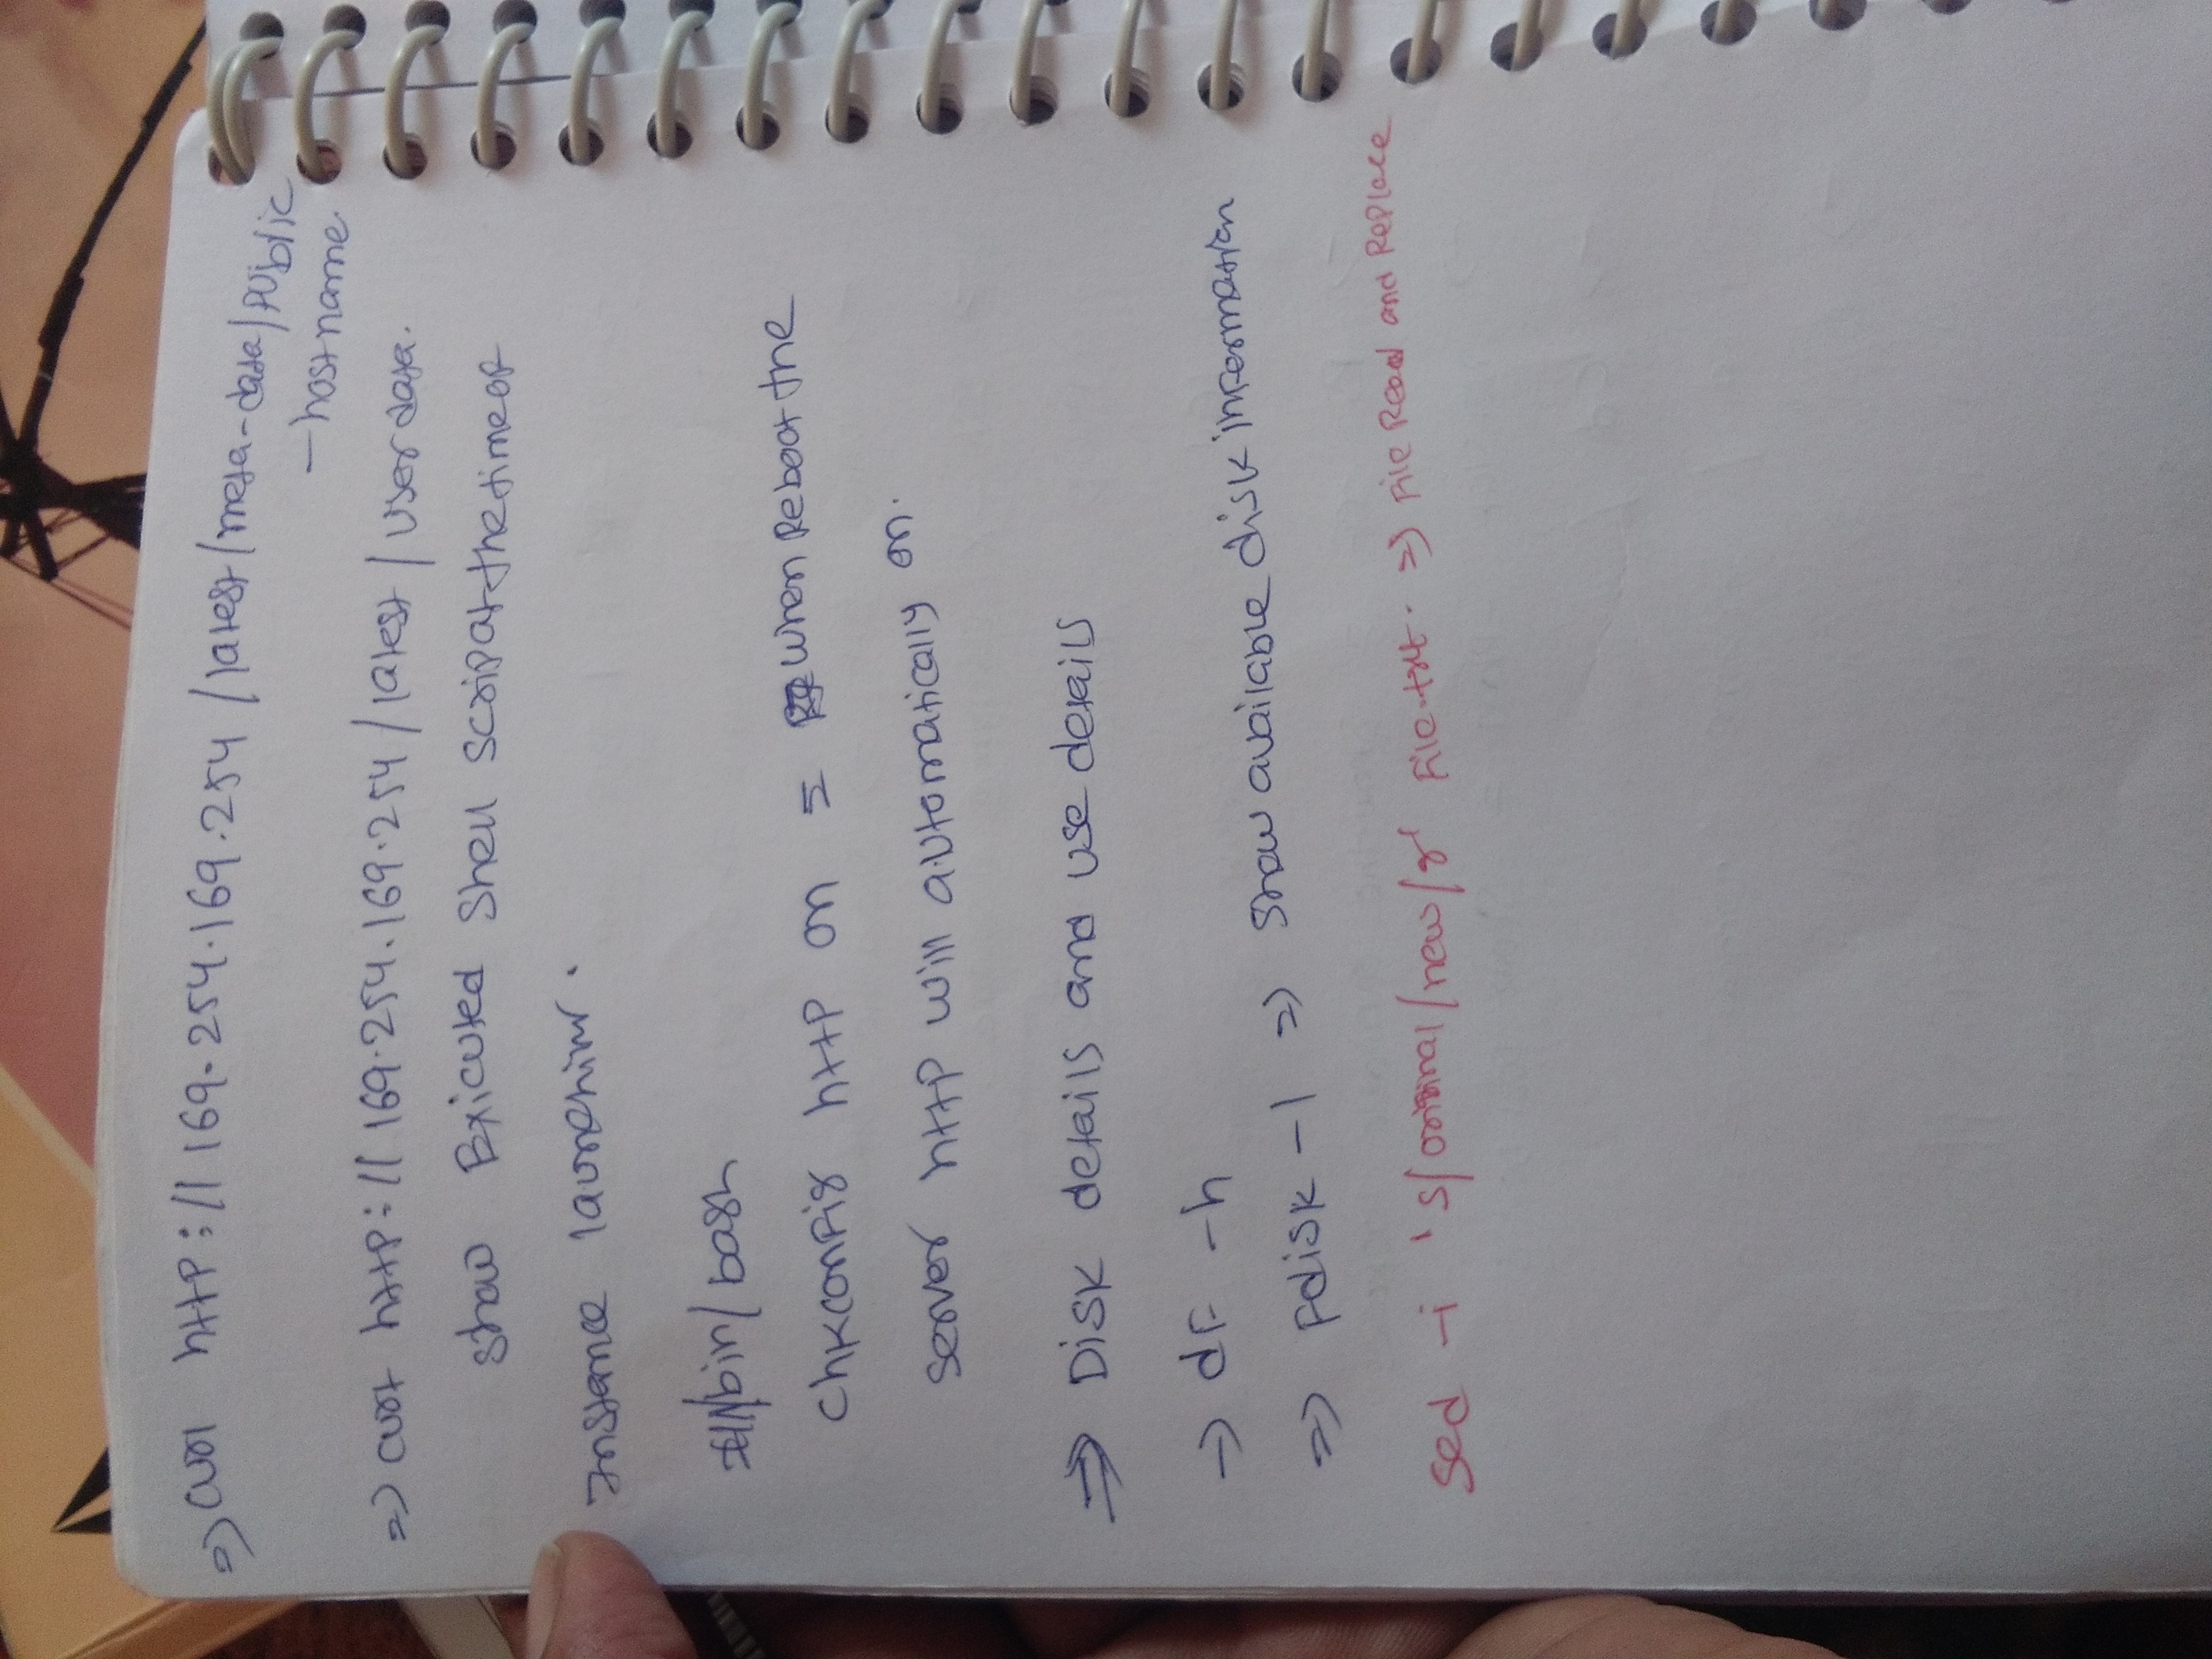 => curl http://169.254.169.254/latest/meta-data/public
-hostname
=> curl http://169.254.169.254/latest/userdata.
show Exicuted Shell scrip at the time of
Instance launching.
#!/bin/bash
chkconfig http on = when Reboot the
server http will automatically on.
=> Disk details and use details
-> df -h
=> Fdisk -l => show available disk information
sed -i 's/original/new/g' File.txt. => File Read and Replace